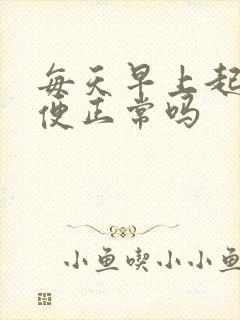 每天早上起
便正常吗
小鱼喫小小鱼